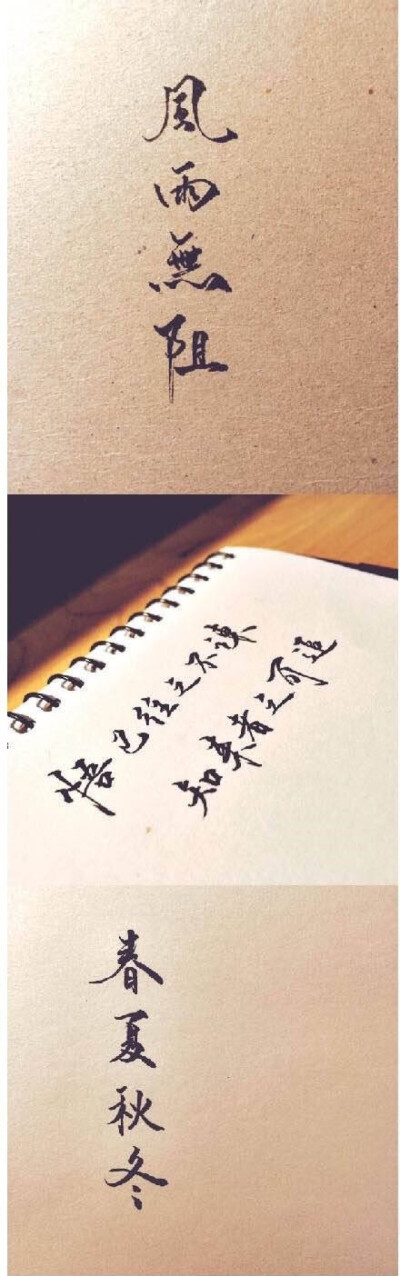 風雨無阻
悟已往之不諫
知来者之可追
春夏秋冬